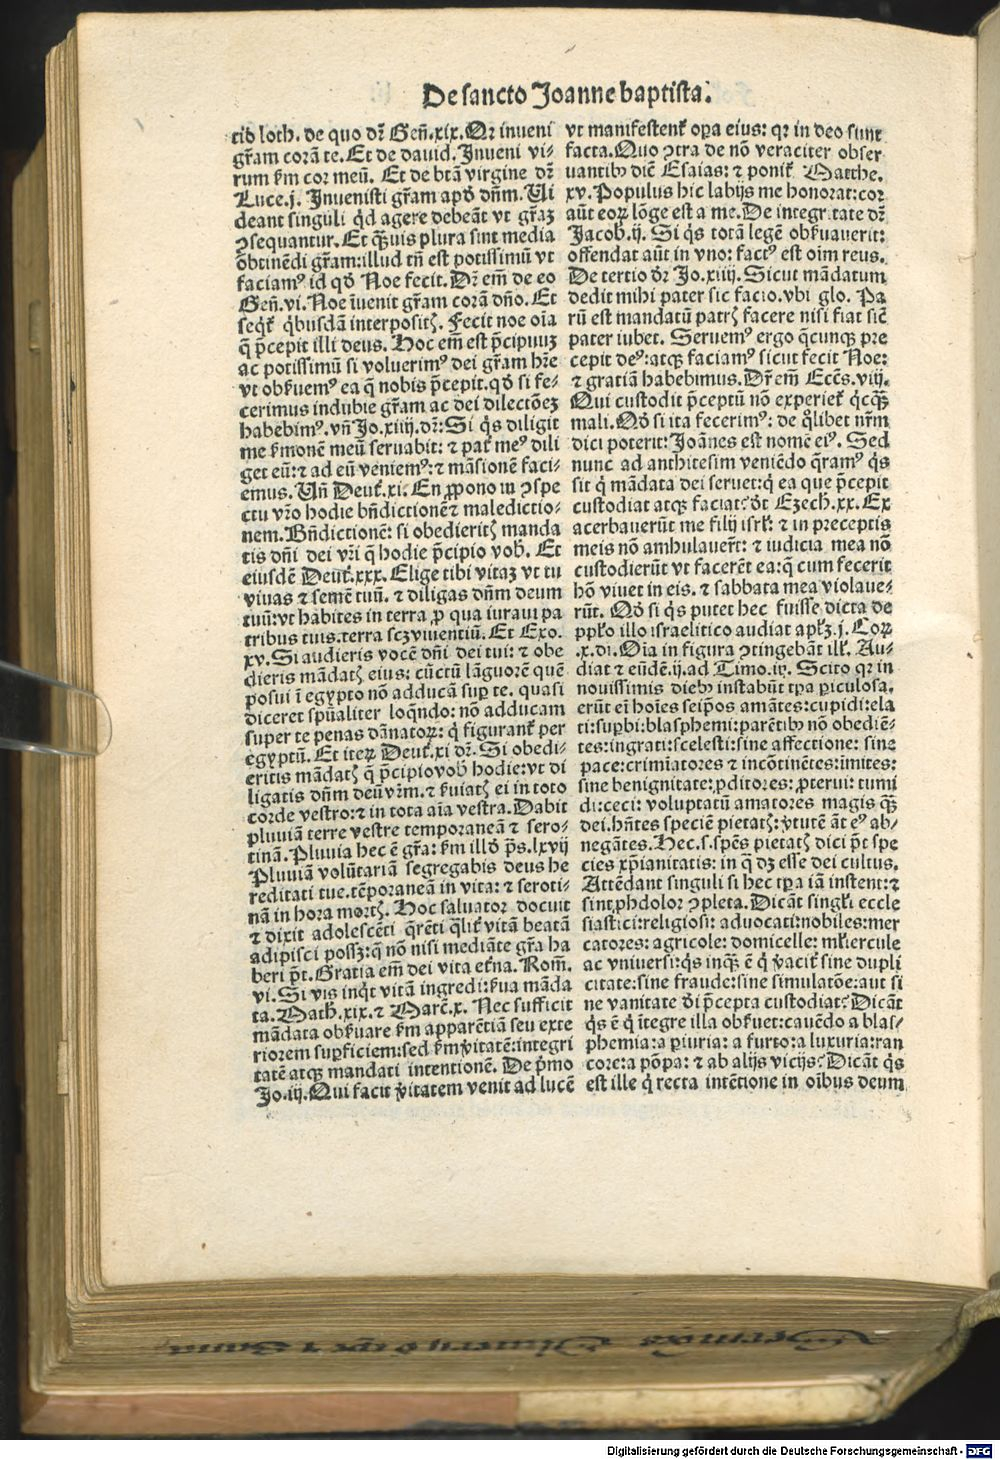 De sancto Joanne baptista.
tio loth. de quo dr̄ Gen̄.xix. Qr inveni
gr̄am corā te. Et de dauid. Inveni vi-
rum ẜm cor meū. Et de btā virgine dr̄
Luce.j. Invenisti gr̄am apd̄ dn̄m. Ui
deant singuli qd̄ agere debeāt vt gr̄aꝫ
ꝯsequantur. Et qq̄uis plura sint media
obtinēdi gr̄am: illud tn̄ est potissimū vt
faciamꝰ id qd̄ Noe fecit. Dr̄ em̄ de eo
Gen̄.vi. Noe īuenit gr̄am corā dn̄o. Et
seqr̄ qͥbusdā interpositꝭ. Fecit noe oīa
q̄ p̄cepit illi deus. Hoc em̄ est p̄cipuuꝫ
ac potissimū si voluerimꝰ dei gr̄am hr̄e
vt obẜuemꝰ ea q̄ nobis p̄cepit. qd̄ si fe-
cerimus indubie gr̄am ac dei dilectōeꝫ
habebimꝰ. vn̄ Jo.xiiij. dr̄: Si qͥs diligit
me ẜmonē meū seruabit: ⁊ patr̄ meꝰ dili
get eū: ⁊ ad eū veniemꝰ: ⁊ māsionē faci-
emus. Un̄ Deut̄.xi. En ꝓpono in ꝯspe
ctu vr̄o hodie bn̄dictionē ⁊ maledictio-
nem. Bn̄dictionē: si obedieritꝭ manda
tis dn̄i dei vr̄i q̄ hodie p̄cipio vob̄. Et
eiusdē Deut̄.xxx. Elige tibi vitaꝫ vt tu
viuas ⁊ semē tuū. ⁊ diligas dn̄m deum
tuū: vt habites in terra ꝓ qua iuraui pa
tribus tuis. terra scꝫ viuentiū. Et Exo.
xv. Si audieris vocē dn̄i dei tui: ⁊ obe
dieris mādatꝭ eius: cūctū lāguorē quē
posui ī egypto nō adducā suꝑ te. quasi
diceret spūaliter loqn̄do: nō adducam
super te penas dānatoꝝ: q̄ figurant̄ per
egyptū. Et iteꝝ Deut̄.xi dr̄. Si obedi-
eritis mādatꝭ q̄ p̄cipio vob̄ hodie: vt di
ligatis dn̄m deū vr̄m. ⁊ ẜuiatꝭ ei in toto
corde vestro: ⁊ in tota aīa vestra. Dabit
pluuiā terre vestre temporaneā ⁊ sero-
tinā. Pluuia hec ē gr̄a: ẜm illd̄ ps̄.lxvij
Pluuiā volūtariā segregabis deus he
reditati tue. tēporaneā in vita: ⁊ seroti-
nā in hora mortꝭ. Hoc saluator docuit
⁊ dixit adolescēti qr̄ēti qͣlit̄ vitā beatā
adipisci possꝫ: q̄ nō nisi mediāte gr̄a ha
beri pt̄. Gratia em̄ dei vita et̄na. Rom̄.
vi. Si vis inqͥt vitā ingredi: ẜua māda
ta. Math̄.xix. ⁊ Marc̄.x. Nec sufficit
mādata obẜuare ẜm apparētiā seu exte
riorem suꝑficiem: sed ẜm v̄itatē: integri
tatē atqꝫ mandati intentionē. De pͥmo
Jo.iij. Qui facit v̄itatem venit ad lucē
vt manifestent̄ oꝑa eius: qr in deo sunt
facta. Quo ꝯtra de nō veraciter obser
uantibꝰ diē Esaias: ⁊ ponit̄ Matthe.
xv. Populus hic labijs me honorat: cor
aūt eoꝝ lōge est a me. De integritate dr̄
Jacob.ij. Si qͥs totā legē obẜuauerit:
offendat aūt in vno: factꝰ est oīm reus.
De tertio dr̄ Jo.xiiij. Sicut mādatum
dedit mihi pater sic facio. vbi glo. Pa
rū est mandatū patrꝭ facere nisi fiat sic̄
pater iubet. Seruemꝰ ergo qͥcunqꝫ pre
cepit deꝰ: atqꝫ faciamꝰ sicut fecit Noe:
⁊ gratiā habebimus. Dr̄ em̄ Ecc̄s.viij.
Qui custodit p̄ceptū nō experiet̄ qͥcqͣꝫ
mali. Qd̄ si ita fecerimꝰ: de qͦlibet nr̄m
dici poterit: Joānes est nomē eiꝰ. Sed
nunc ad anthitesim veniēdo qr̄amꝰ qͥs
sit qͥ mādata dei seruet: qͥ ea que p̄cepit
custodiat atqꝫ faciat: d̄t Ezech.xx. Ex
acerbauerūt me filij isrl̄: ⁊ in preceptis
meis nō ambulauerūt: ⁊ iudicia mea nō
custodierūt vt facerēt ea: q̄ cum fecerit
hō viuet in eis. ⁊ sabbata mea violaue-
rūt. Qd̄ si qͥs putet hec fuisse dicta de
pplo illo israelitico audiat apl̄ꝫ.j. Coꝝ
.x. di. Oīa in figura ꝯtingebāt ill̄. Au-
diat ⁊ eūdē.ij. ad Timo.iij. Scito qr in
nouissimis diebꝰ instabūt tꝑa ꝑiculosa.
erūt eī hoīes seip̄os amātes: cupidi: ela
ti: suꝑbi: blasphemi: parētibꝰ nō obediē-
tes: ingrati: scelesti: sine affectione: sine
pace: crimīatores ⁊ incōtinētes: īmites:
sine benignitate: ꝓditores: ꝓterui: tumi
di: ceci: voluptatū amatores magis qͣꝫ
dei. hn̄tes speciē pietatꝭ: v̄tutē āt eꝰ ab-
negātes. Hec.s. spēs pietatꝭ dici pt̄ spe
cies xp̄ianitatis: in q̄ dꝫ esse dei cultus.
Attēdant singuli si hec tꝑa iā instent: ⁊
sint ꝓhdolor ꝯpleta. Dicāt singl̄i eccle
siastici: religiosi: aduocati: nobiles: mer
catores: agricole: domicelle: ml̄iercule
ac vniuersi: qͥs inqͣꝫ ē qͥ v̄acit̄ sine dupli
citate: sine fraude: sine simulatōe: aut si
ne vanitate d̄i p̄cepta custodiat? Dicāt
qͥs ē qͥ ītegre illa obẜuet: cauēdo a blas-
phemia: a ꝑiuria: a furto: a luxuria: ran
core: a pōpa: ⁊ ab alijs vicijs? Dicāt qͥs
est ille qͥ recta intētione in oībus deum
Digitalisierung gefördert durch die Deutsche Forschungsgemeinschaft - DFG